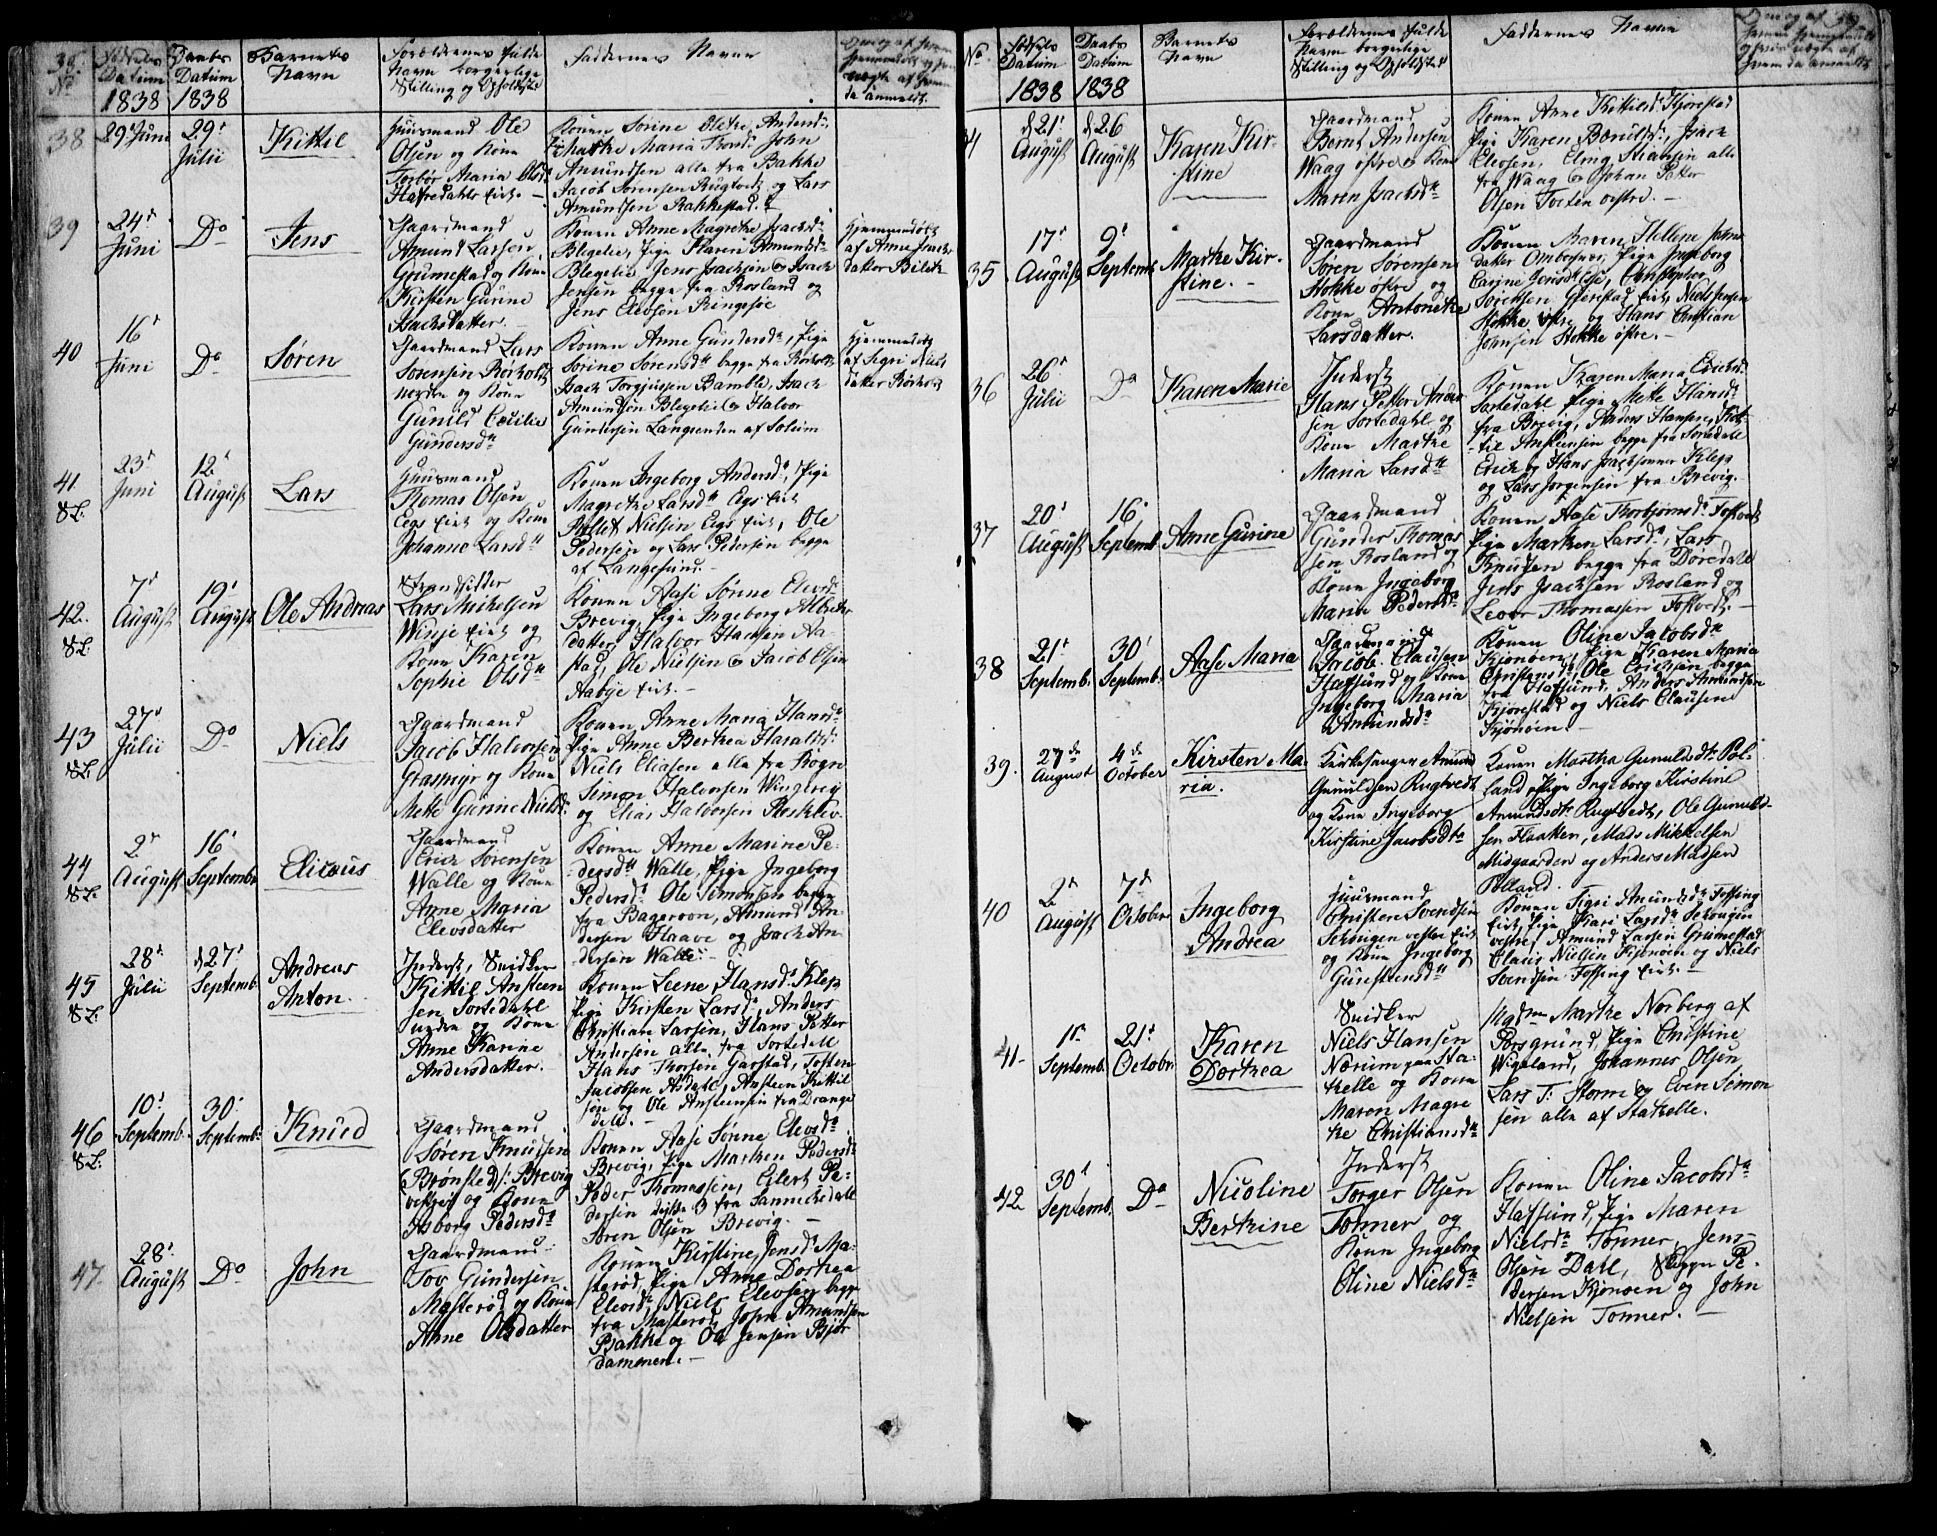 No
Fødsels Datum 1838
Daabs Datum 1838
Barnets Navn
Forældrenes fulde Navn borgerlige Stilling og Opholdsted
Faddernes Navne
38
29de Juni
29de Julii
Kittil
Huusmand Ole
Olsen og Kone
Torbor Maria Olsdr
Konen Sørine Olette Andersdr,
Amundsen alle fra Bakke
Jacob Sørensen Rugtvedt og Lars
Amundsen Bakkestad.
39
24de Juni
Do
Jens
Gaardmand
Amund Larsen
Grumestad og Kone
Kirsten Gurine
Isachsdatter.
Konen Anne Magrethe Isachsdr
Blegelie, Pige Karen Amundsdr
Blegelie Jens Isachsen & Isach
Jensen begge fra Rosland og
Jens Elevsen Ringsjøe
hjemmedøbt
af Anne Isachs-
datter
40
16de Juni
Do
Søren
Gaardmand Lars
Sørensen Rørholt
nordre og Kone
Gunild Cecilie
Gundersdr
Konen Anne Gundersdr, Pige
Sørine Sørensdr begge fra Rørholt
Isach Torgjussen Bamble, Isach
Amundsen Blegelie & Halvor
Gundersen Langrønden af Solum
hjemmedøbt
af Sigri Niels
datter Rørholt
41
S.L.
23de Juni
12te August
Lars
Huusmand
Thomas Olsen
Eegs Eiet og Kone
Johanne Larsdr
Konen Ingeborg Andersdr, Pige
Magrethe Larsdr Eegs Eiet
Nielsen Eegs Eiet, Ole
Pedersen og Lars Pedersen begge
af Langesund.
42.
S.L.
7de August
19de August
Ole Andreas
Strandsidder
Lars Mikelsen
Winje Eiet og
Kone Karen
Sophie Olsdr
Konen Aase Sørine Elevsdr
Brevig, Pige Ingeborg
datter, Halvor Hansen Aa-
stad, Ole Nielsen & Jacob Olsen
Aabye Eiet.
43
S.L.
27de Julii
Do
Niels
Gaardmand
Jacob Halvorsen
Grasmyr og Kone
Mette Gurine Nielsdr
Konen Anne Maria Hansdr
Pige Anne Berthea Haraldsdr
Niels Eliasen alle fra Rogn
Simon Halvorsen
og Elias Halvorsen
44
S.L.
2de August
16de Septembr
Elieus
Gaardmand
Erich Sørensen
Walle og Kone
Anne Maria
Elevsdatter
Konen Anne Marine Pe-
dersdr Walle, Pige Ingeborg
Pedersdr Ole Simonsen begge
fra Bageroen, Amund An-
dersen Flaave og Isach An-
dersen Walle.
45
S.L.
28de Julii
d 27de Septemb.
Andreas Anton.
Inderst, Snidker
Kittil Ansteen
sen Sortedahl
nedre og Kone
Anne Karine
Andersdatter.
Konen Leene Hansdr Klep
Pige Kirsten Larsdr, Anders
Christian Larsen, Hans Petter
Andersen alle fra Sortedahl
Hans Thorsen Garstad, Tosten
Jacobsen Aadahl, Ansteen Kittil
sen og Ole Ansteensen fra Drange
dahl.
46
S.L.
10de Septemb.
30de Septembr
Knud
Gaardmand
Søren Knudsen
(Brønsted) /: Brevig
vestre og Kone
Asborg Pedersdr
Konen Aase Sørine Elevsdr
Brevig, Pige Marthen Pedersdr
Peder Thomassen, Eilert Pe-
dersen disse 3 fra Sannikedahl
Søren Olsen Brevig.
47.
28de August
Do
John
Gaardmand
Tov Gundersen
Masterød og Kone
Anne Olsdatter
Konen Kirstine Jensdr Ma-
sterød, Pige Anne Dorthea
Elevsdr Niels Elevsen begge
fra Masterød, John Amundsen
Bakke og Ole Jensen Bjør
dammen.
No
Fødsels Datum 1838
Daabs Datum 1838
Barnets Navn
Forældrenes fulde Navn borgerlige Stilling og Opholdsted
Faddernes Navne
4
d 21de August
d 26 August
Karen Kir-
stine
Gaardmand
Bernt Andersen
Waag østre & Kone
Maren Isachsdr
Konen Anne Kittilsdr Kjørestad
Pige Karen Berntsdr, Isach
Elevsen, Elling Stiansen alle
fra Waag & Johan Petter
Olsen Tveten østre.
35
17de August
9de Septemb.
Marthe Kir-
stine.
Gaardmand
Søren Sørensen
Stokke østre og
Kone Antonette
Larsdatter.
Konen Maren Hellene Johns
datter Ombersnes, Pige Ingeborg
Stokke østre og Hans Christian
Johnsen Stokke østre.
36
26de Julii
Do
Karen Marie
Inderst
Hans Petter Ander
sen Sortedahl og
Kone Marthe
Maria Larsdr
Konen Karen Maria Erichsdr
Sortedahl Pige Mette Hansdr
fra Brevig, Anders Hansen, Kit-
til Ansteensen begge fra Sortedahl
Erich og Hans Isachsønner Klep
og Lars Jørgensen fra Brevig.
37
20de August
16de Septemb.
Anne Gurine
Gaardmand
Gunder Thomas
sen Rosland og
Kone Ingeborg
Maria Pedersdr
Konen Aase Thorbjørnsdr Tostvedt
Pige Marthen Larsdr, Lars
Knudsen begge fra Dørdahl
Jens Isachsen Rosland og
Leovr Thomassen Tostvedt.
38
21de Septemb.
30de Septemb.
Aase Maria
Gaardmand
Jacob Clausen
Hafsund og Kone
Ingeborg Maria
Amundsdr
Konen Oline Jacobsdr
Kjønøen, Pige Karen Maria
Christensdr, Ole Erichsen begge
fra Hafsund, Anders Amundsen
Kjørestad og Niels Clausen
Kjønøen.
39.
27de August
4de October
Kirsten Ma-
ria.
Kirkesanger Amund
Gunuldsen Rugtvedt
og Kone Ingeborg
Kirstine Jacobsdtr
Konen Martha Gunuldsdtr Pol-
land, Pige Ingeborg Kirstine
Amundsdtr Rugtvedt, Ole Gunuld-
sen Flaatten, Mads Mikkelsen
Midgaarden og Anders Madsen
Polland.
40
2de August
7de October
Ingeborg
Andrea
Huusmand
Christen Svendsen
vestre Eiet
og Kone Ingeborg
Gunsteensdr
Konen Sigri Amundsdr Fossing
Eiet, Pige Kari Larsdr
vestre, Amund Larsen Grumestad
Claus Nielsen Kjønøen og Niels
Svendsen Fossing Eiet.
41.
1ste Septemb.
21de Octobr
Karen
Dorthea
Snidker
Niels Hansen
Nærum paa Sta-
thelle og Kone
Maren Magre
the Christiansdr
Madme Marthe Norberg af
Porsgrund, Pige Christine
Wigeland, Johannes Olsen
Lars T. Storm & Even Simon
sen alle af Stathelle.
42
30de Septemb.
Do
Nicoline
Berthine
Inderst
Torger Olsen
Tonner og
Kone Ingeborg
Oline Nielsdr
Konen Oline Jacobsdr
Hafsund, Pige Maren
Nielsdr Tonner, Jens
Olsen Dahl, Pe-
dersen Kjønøen og John
Nielsen Tonner.